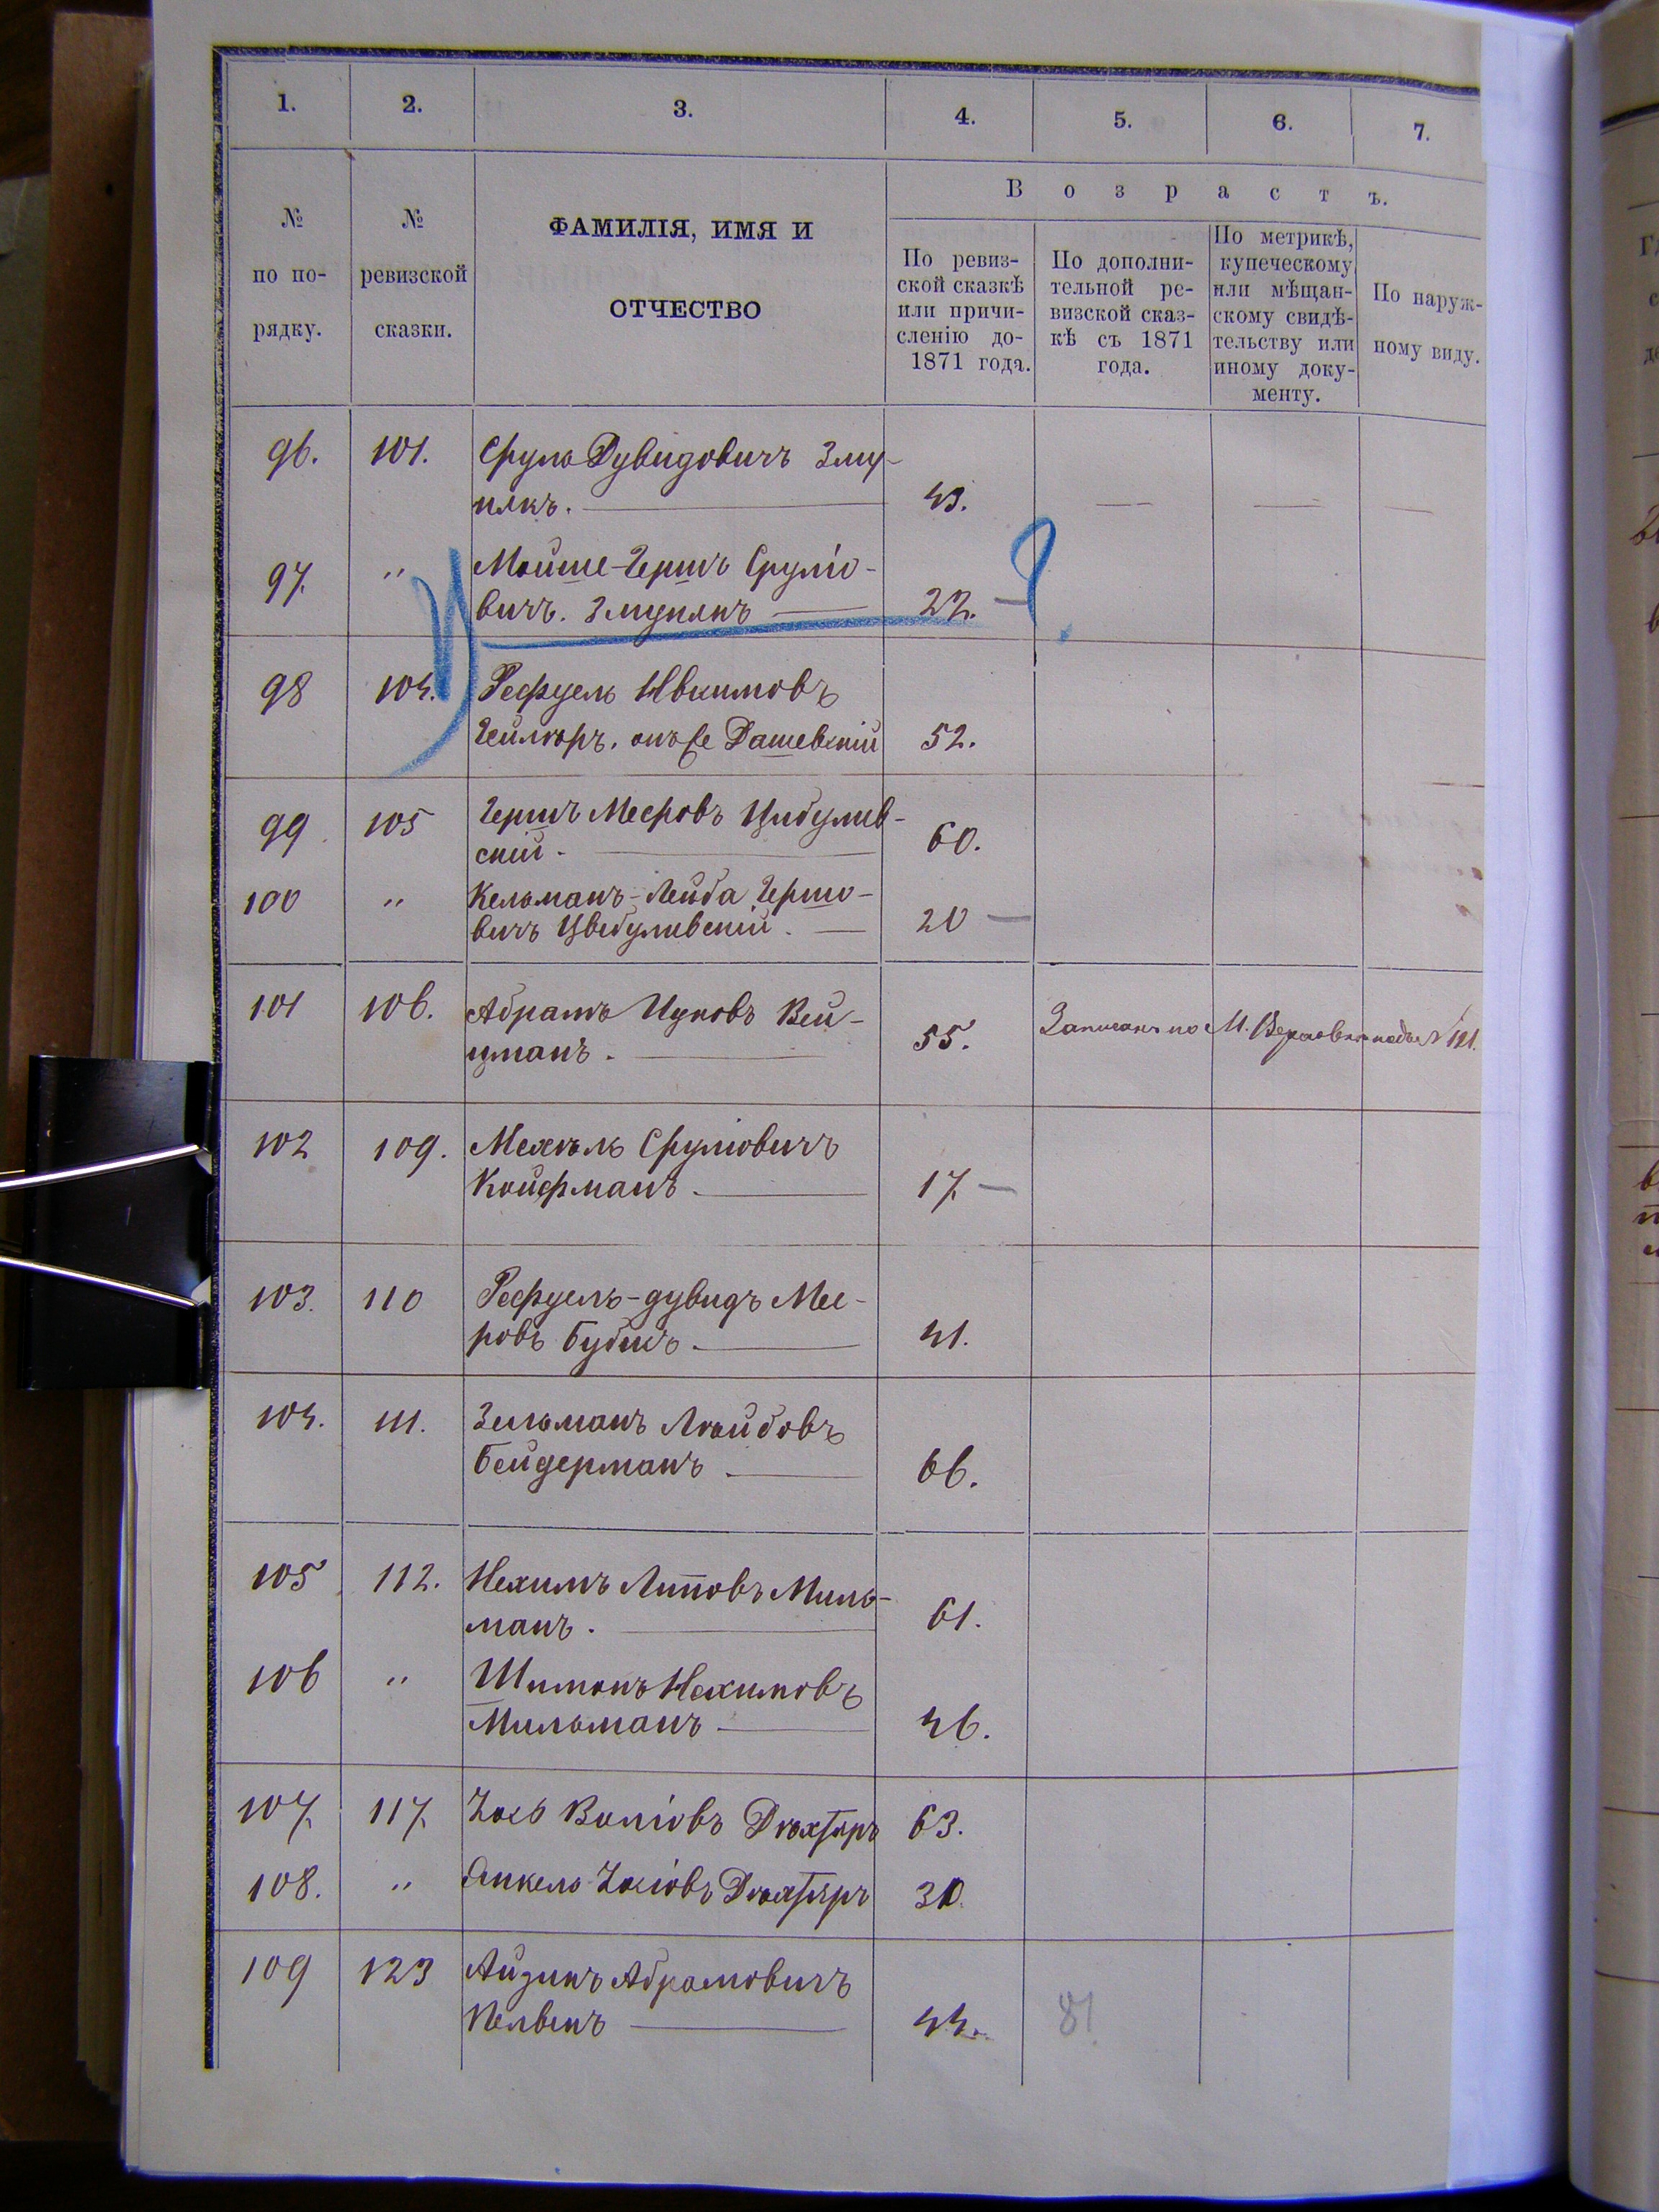 1. 2. 3. 4. 5. 6. 7.
№ по по- рядку.
№ ревизской сказки.
ФАМИЛІЯ, ИМЯ И
ОТЧЕСТВО
Возрастъ.
По ревиз-
ской сказкѣ
или причи-
сленію до-
1871 года.
По дополни-
тельной ре-
визской сказ-
кѣ съ 1871
года.
По метрикѣ,
купеческому
или мѣщан-
скому свидѣ-
тельству или
иному доку-
менту.
По наруж-
ному виду.
96. 101. Сруль Дувидовичъ Зму-
някъ. 43.
97. " Мойше-Гершъ Сруліо-
вичъ. Змунякъ 22. ?
98 104. Рефуель
онъ же Дашевскій 52.
99 105 Гершъ Меeровъ Цибулив-
скій. 60.
100 " Кельманъ-Лейба Гершо-
вичъ Цвибуливскій. 20
101 106. Абрамъ Ицковъ Вей-
цманъ. 55. Записанъ по М. подъ № 121.
102 109. Мехель Сруліовичъ
Койфманъ. 17
103. 110 Рефуель-дувидъ Мее-
ровъ Бубисъ. 41.
104. 111. Зельманъ Лейбовъ
Бейдерманъ 66.
105 112. Нехимъ Липовъ Миль-
манъ. 61.
106 " Шимонъ Нехимовъ
Мильманъ 46.
107 117 Іось Воліовъ Дюхтяръ 63.
108. " Янкель Іосіовъ Дюхтяръ 30.
109 123 Айзикъ Абрамовичъ
44. 81